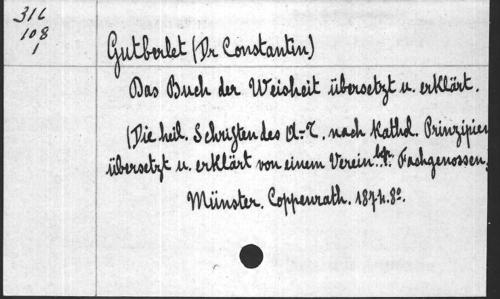 316
108
1
Gutberlet (Dr Constantin)
Das Buch der Weisheit übersetzt u. erklärt.
(Die heil. Schriften des A-T. nach Kathol. Prinzipien
übersetzt u. erklärt von einem Verein Fachgenossen.
Münster. Coppenrath. 1874. 8°.